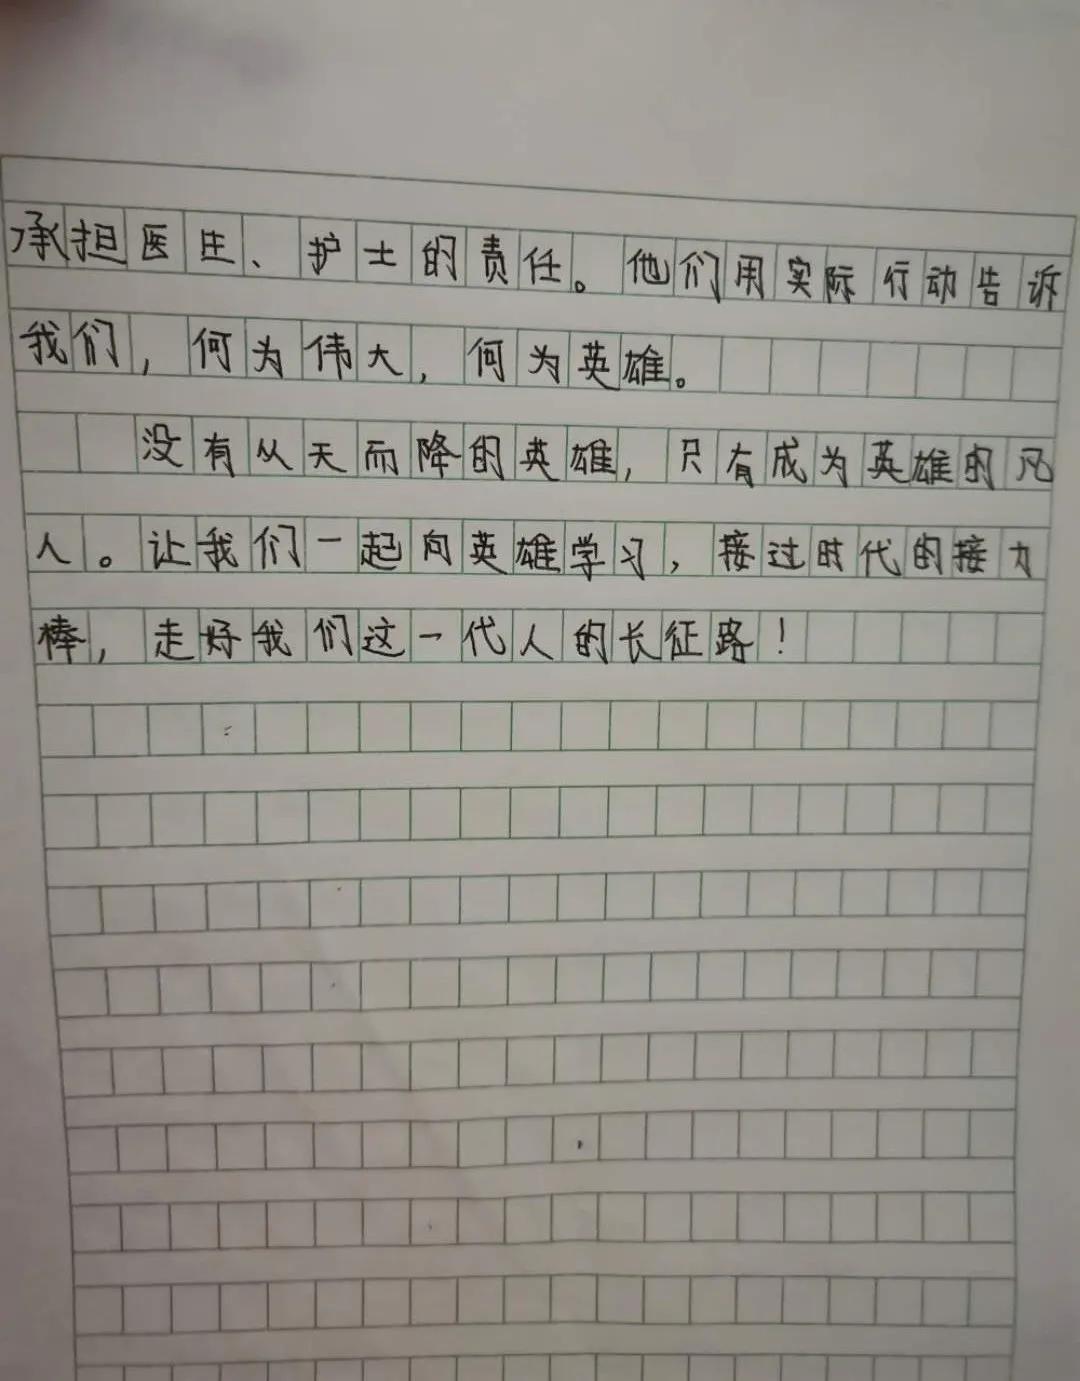 承担医生、护士的责任。他们用实际行动告诉
我们，何为伟大，何为英雄。
没有从天而降的英雄，只有成为英雄的凡
人。让我们一起向英雄学习，接过时代的接力
棒，走好我们这一代人的长征路！